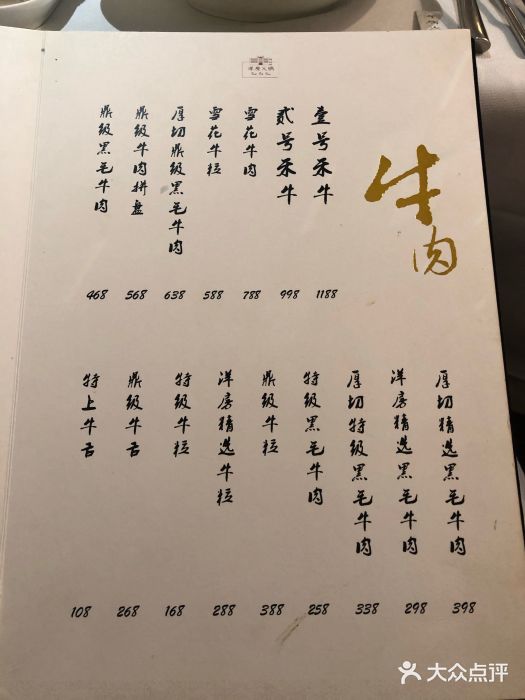 洋房火锅
牛肉
壹号禾牛
1188
贰号禾牛
998
雪花牛肉
788
雪花牛粒
588
厚切鼎级黑毛牛肉
638
鼎级牛肉拼盘
568
鼎级黑毛牛肉
468
厚切精选黑毛牛肉
398
洋房精选黑毛牛肉
298
厚切特级黑毛牛肉
338
特级黑毛牛肉
258
鼎级牛粒
388
洋房精选牛粒
288
特级牛粒
168
鼎级牛舌
268
特上牛舌
108
大众点评